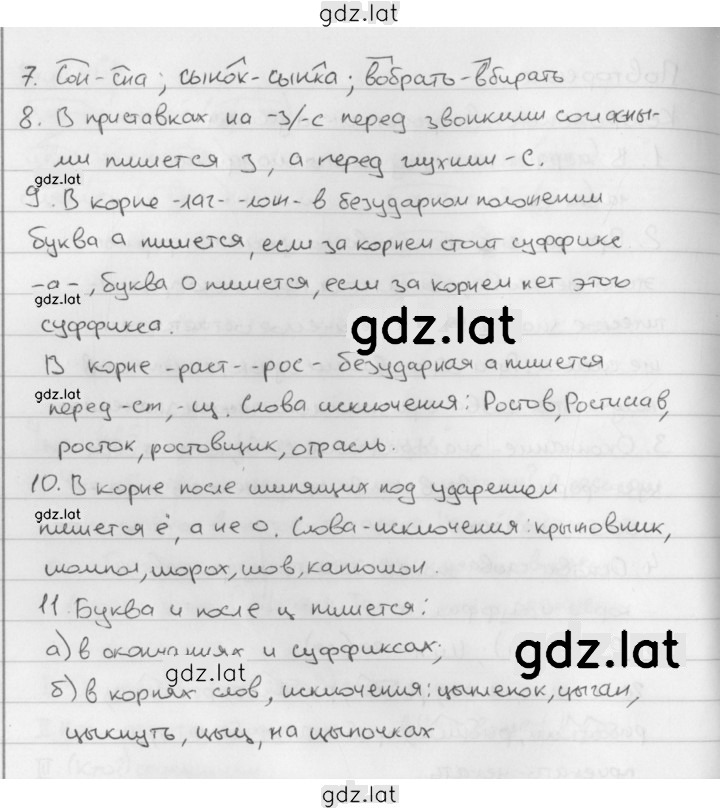 gdz.lat
7. Сон - сна; сынок - сынка; вобрать - вбирать
8. В приставках на -з/-с перед звонкими согласны-
ми пишется з, а перед глухими - с.
gdz.lat
9. В корне -лаг- -лож- в безударном положении
буква а пишется, если за корнем стоит суффикс
-а-, буква о пишется, если за корнем нет этого
gdz.lat
суффикса.
gdz.lat
В корне -раст- -рос- безударная а пишется
gdz.lat
перед -ст, -щ. Слова исключения: Ростов, Ростислав,
росток, ростовщик, отрасль.
10. В корне после шипящих под ударением
gdz.lat
пишется ё, а не о. Слова-исключения: крыжовник,
шомпол, шорох, шов, капюшон.
11. Буква и после ц пишется:
а) в окончаниях и суффиксах;
gdz.lat
gdz.lat
б) в корнях слов, исключения: цыпленок, цыган,
цыкнуть, цыц, на цыпочках
gdz.lat